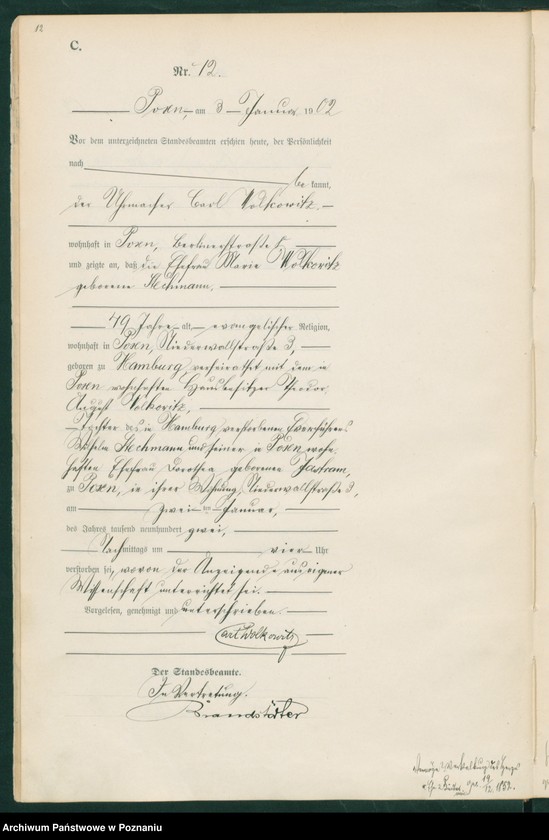 12
C.
Nr. 12.
Posen, am 3 Januar 1902
Vor dem unterzeichneten Standesbeamten erschien heute, der Persönlichkeit
nach
be kannt,
der Uhrmacher Carl Wolkowitz.
wohnhaft in Posen, Berlinerstraße
und zeigte an, daß die Ehefrau Marie Wolkowitz
geborene Stechmann,
49 Jahre alt, evangelischer Religion,
wohnhaft in Posen, Niederwallstraße 3,
geboren zu Hamburg, verheirathet mit dem in
Posen wohnhaften Hausbesitzer Theodor
August Wolkowitz,
Tochter des in Hamburg verstorbenen
Wilhelm Stechmann und seiner in Posen wohn-
haften Ehefrau Dorothea geborenen Jastram,
zu Posen, in ihrer Wohnung, Niederwallstraße 3,
am zwei ten Januar,
des Jahres tausend neunhundert zwei,
Nachmittags um vier Uhr
verstorben sei, wovon der Anzeigende aus eigener
Wissenschaft unterrichtet sei.
Vorgelesen, genehmigt und unterschrieben.
Carl Wolkowitz
Der Standesbeamte.
In Vertretung.
Brandstädter
Archiwum Państwowe w Poznaniu